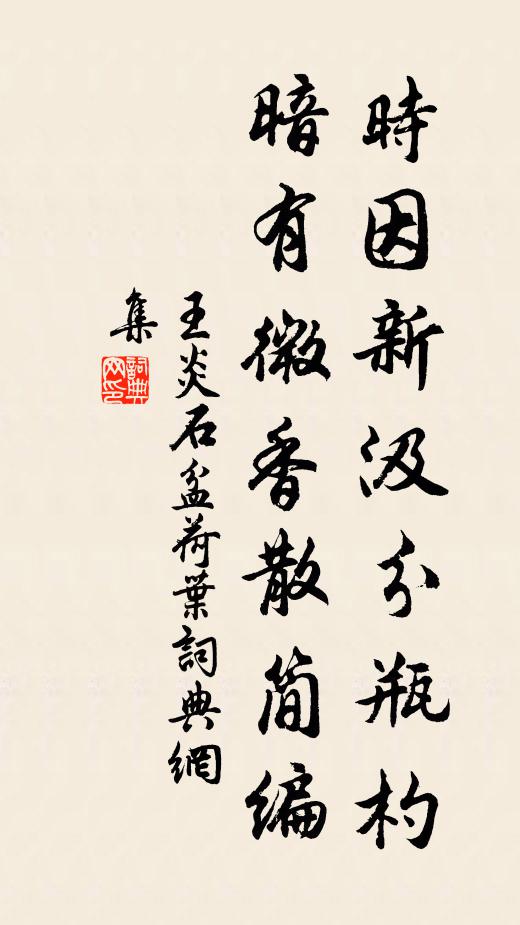 時因新汲分瓶杓
暗有微香散简编
王炎石盆荷葉詞典網
集
詞典網印